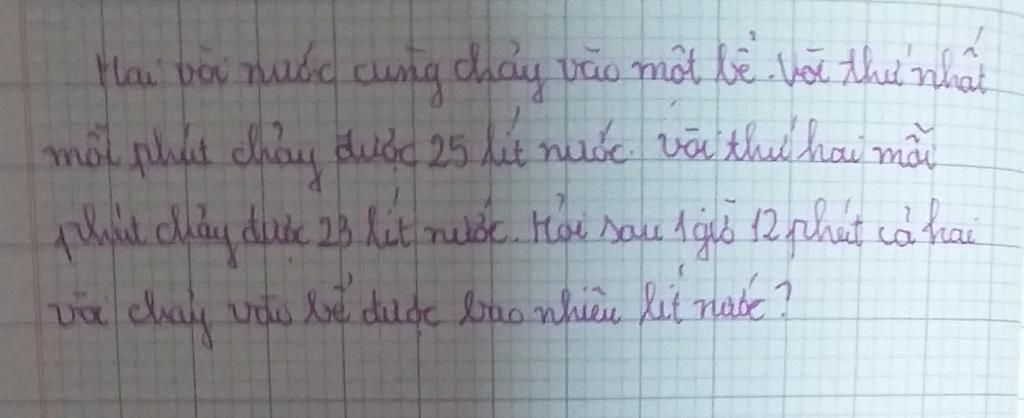 Hai vòi nước cùng chảy vào một bể. Vòi thứ nhất
mỗi phút chảy được 25 lít nước. Vòi thứ hai mỗi
phút chảy được 23 lít nước. Hỏi sau 1 giờ 12 phút cả hai
vòi chảy vào bể được bao nhiêu lít nước?